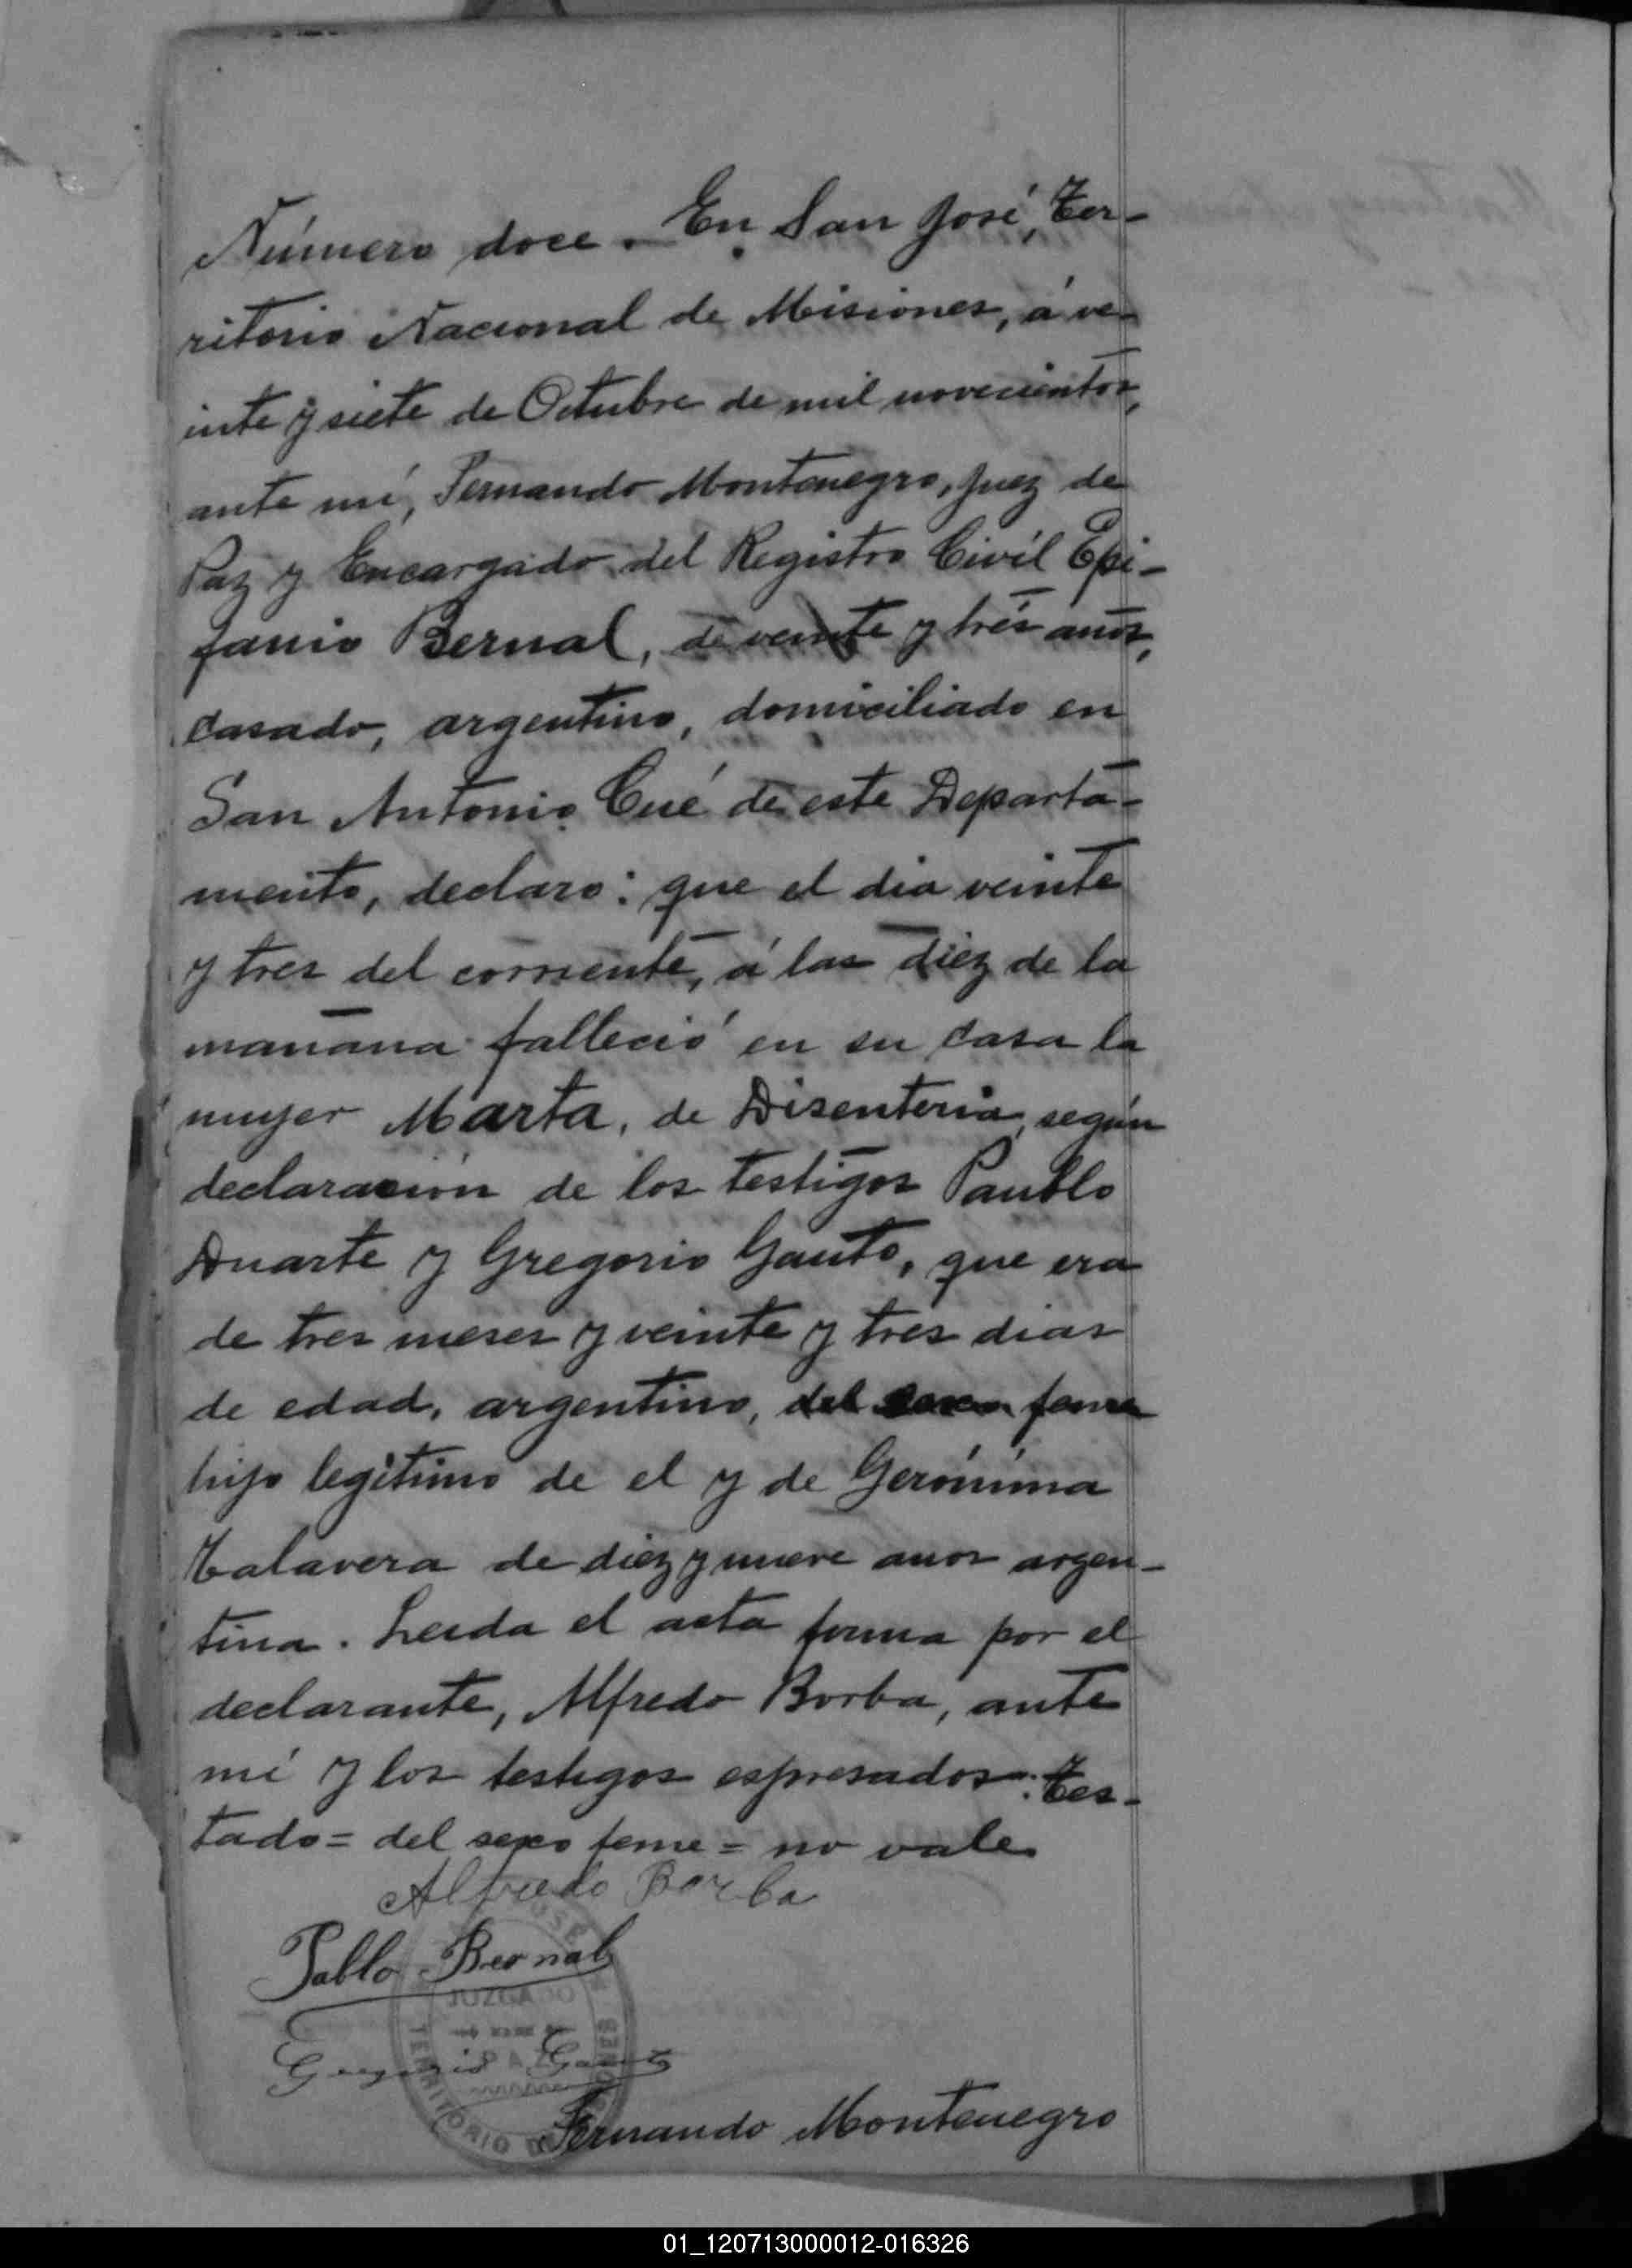 Número doce. En San José, Ter-
ritorio Nacional de Misiones, á ve-
inte y siete de Octubre de mil novecientos,
ante mí, Fernando Montenegro, Juez de
Paz y Encargado del Registro Civíl Epi-
fanio Bernal, de veinte y trés años,
casado, argentino, domiciliado en
San Antonio Cué de este Departa-
mento, declaro: que el dia veinte
y tres del corriente, á las diez de la
mañana falleció en su casa la
mujer Marta, de Disenteria, según
declaración de los testigos Paublo
Duarte y Gregorio Gauto, que era
de tres meses y veinte y tres dias
de edad, argentino, del sexo feme
hijo legítimo de el y de Gerónima
Talavera de diez y nueve anos argen-
tina. Leida el acta firma por el
declarante, Alfredo Borba, ante
mí y los testigos espresados. Tes-
tado = del sexo feme = no vale
Alfredo Borba
Pablo Bernal
JUZGADO
PAZ
TERRITORIO DE MISIONES
Gregorio Gauto
Fernando Montenegro
01_120713000012-016326